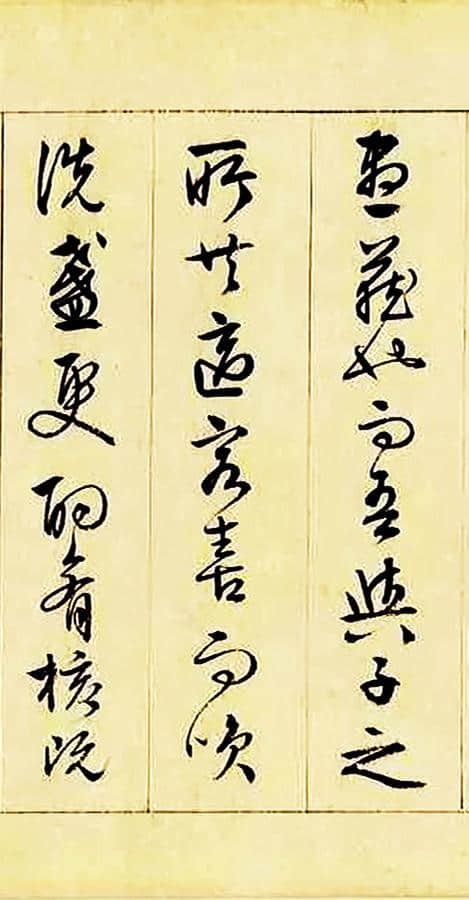 盡藏也而吾與子之
所共適客喜而咲
洗盞更酌肴核既